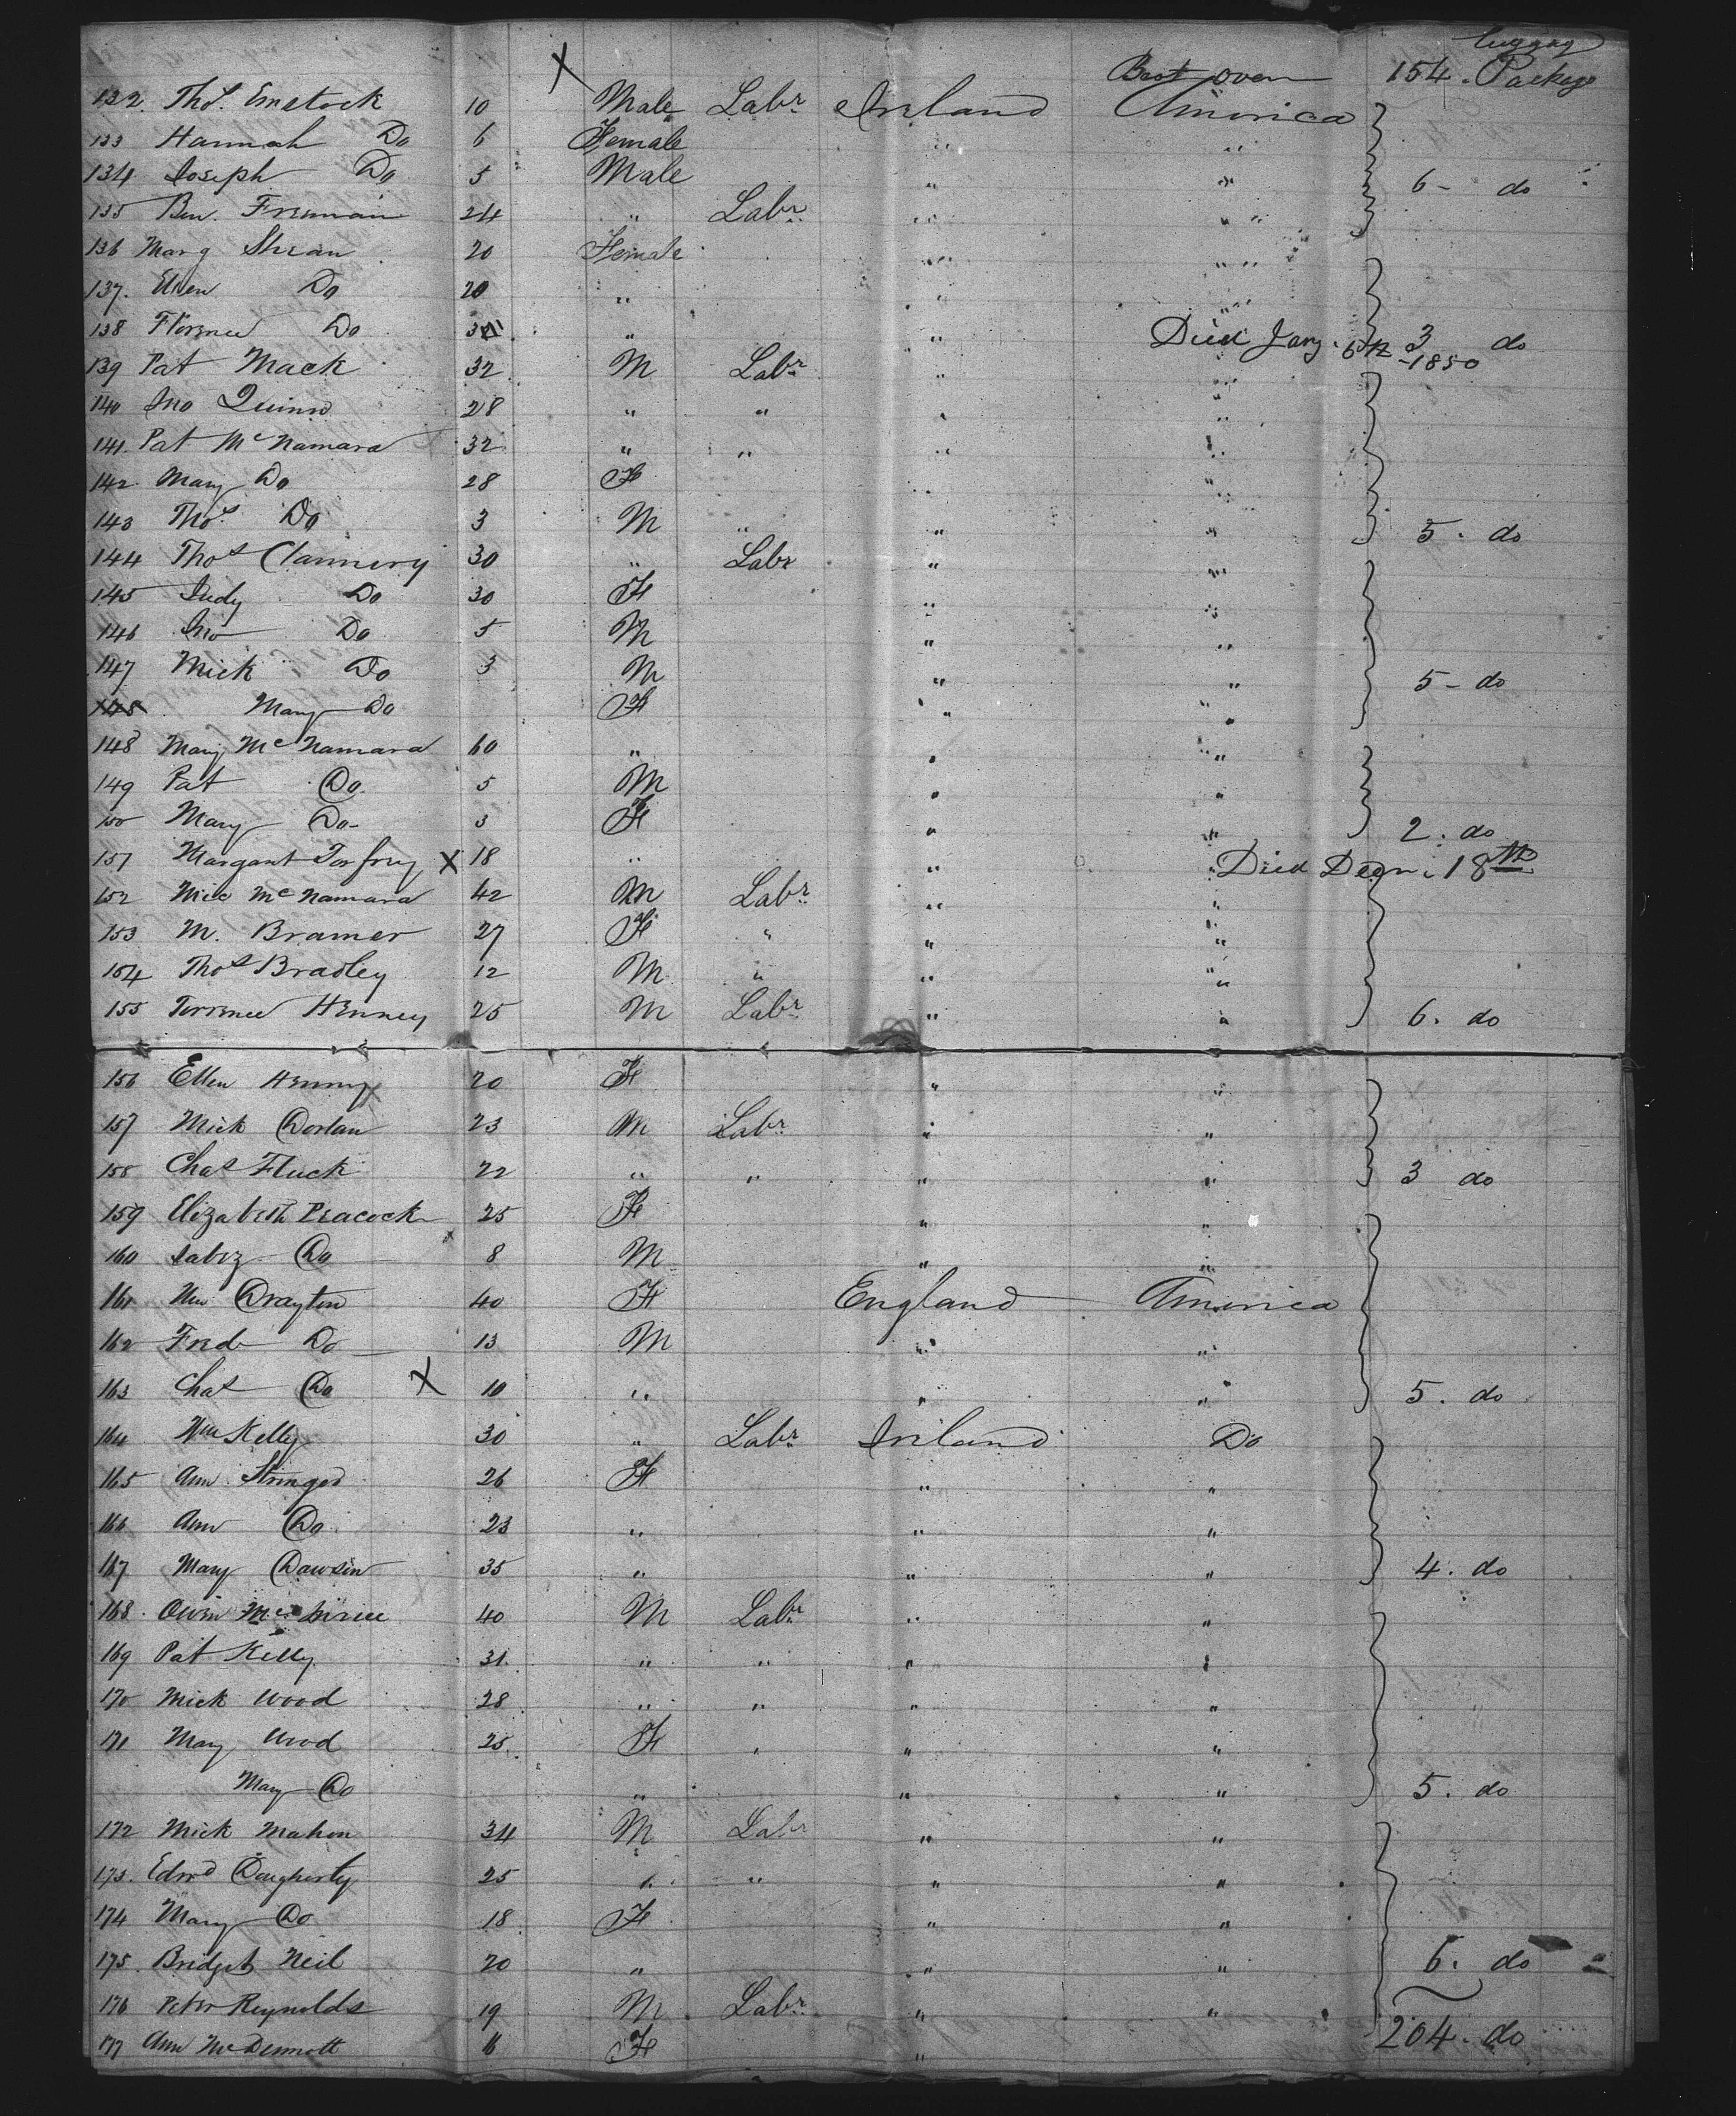 luggag
Brot over 154. Package
132. Thos. Emstock 10 Male Labr Ireland America
133 Hannah Do 6 Female " "
134 Joseph Do 5 Male " " 6 - do
135 Ben. Freeman 24 " Labr " "
136 Marg Shean 20 Female " "
137. Ellen Do 20 " " "
138 Florence Do " " Died Jany. 6th 1850 3 do
139 Pat Mack 32 M Labr " "
140 Jno Quinn 28 " " " "
141. Pat McNamara 32 " " " "
142. Mary Do 28 F " "
143 Thos. Do 3 M " " " 5. do
144 Thos Clannery 30 " Labr " "
145 Judy Do 30 F " "
146 Jno Do 5 M " "
147 Mick Do 3 M " " 5 - do
148 Mary Do F " "
148 Mary McNamara 60 " " "
149 Pat Do. 5 M " "
150 Mary Do- 3 F " " 2. do
151 Margaret X 18 " " " Died Decr. 18th
152 Mic McNamara 42 M Labr " "
153 M. Bramer 27 F " " "
154 Thos Bradley 12 M " " "
155 Terrence Henney 25 M Labr " " 6. do
156 Ellen Henney 20 F " "
157 Mick Dorlan 23 M Labr " "
158 Chas Fluck 22 " " " " 3 do
159 Elizabeth Peacock 25 F " "
160 Jabez Do 8 M " "
161 Drayton 40 F England America
162 Fred Do 13 M " "
163 Chas Do X 10 " " " 5. do
164 Wm Kelly 30 " Labr Ireland Do
165 Ann Stringer 26 F " "
166 Ann Do 23 " " "
167 Mary Dawson 35 " " " 4. do
168. Owen 40 M Labr " "
169 Pat Kelly. 31. " " " "
170 Mick Wood 28 " " " "
171 Mary Wood 25 F " " "
Mary Do " " " 5. do
172 Mick Mahon 34 M Labr " "
173. Edwd Daugherty 25 " " " "
174 Mary Do 18 F " "
175. Bridget Neil 20 " " " 6. do
176 Peter Reynolds 19 M Labr " "
177 Ann McDermott 16 F " 204. do